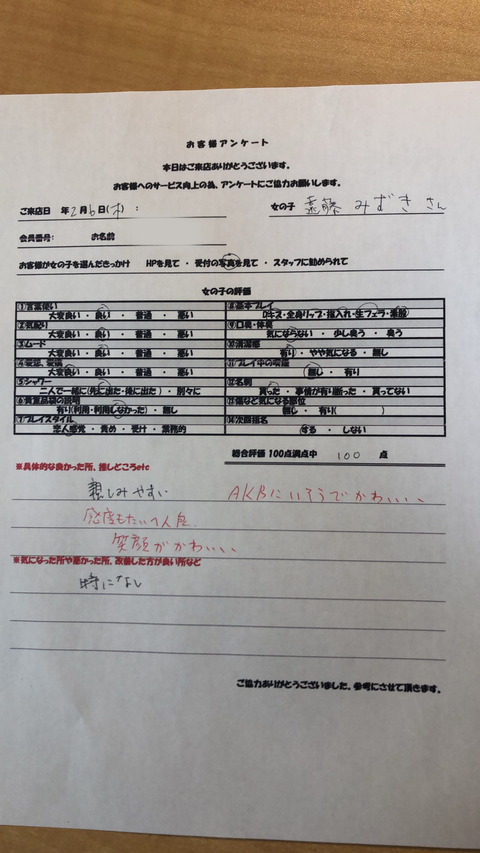 お客様アンケート
本日はご来店ありがとうございます。
お客様へのサービス向上の為、アンケートにご協力お願いします。
ご来店日 年2月6日(木) : 女の子 遠藤 みずき さん
会員番号: お名前
お客様が女の子を選んだきっかけ HPを見て ・ 受付の写真を見て ・ スタッフに勧められて
女の子の評価
①言葉使い
大変良い ・ 良い ・ 普通 ・ 悪い
②気配り
大変良い ・ 良い ・ 普通 ・ 悪い
③ムード
大変良い ・ 良い ・ 普通 ・ 悪い
大変良い ・ 良い ・ 普通 ・ 悪い
⑤シャワー
二人で一緒に(先に出た・後に出た) ・ 別々に
⑥貴重品袋の説明
有り(利用・利用しなかった) ・ 無し
⑦プレイスタイル
恋人感覚 ・ 責め ・ 受け ・ 業務的
⑧基本プレイ
Dキス・全身リップ・指入れ・生フェラ・素股
⑨口臭・体臭
気にならない ・ 少し臭う ・ 臭う
⑩清潔感
有り ・ やや気になる ・ 無し
⑪プレイ中の喫煙
無し ・ 有り
⑫名刺
貰った ・ 事情が有り断った ・ 貰ってない
⑬傷など気になる部位
無し ・ 有り( )
⑭次回指名
する ・ しない
総合評価 100点満点中 100 点
※具体的な良かった所、推しどころetc
親しみやすい AKBにいそうでかわいい、、
笑顔がかわいい、、
※気になった所や悪かった所、改善した方が良い所など
時になし
ご協力ありがとうございました。参考にさせて頂きます。